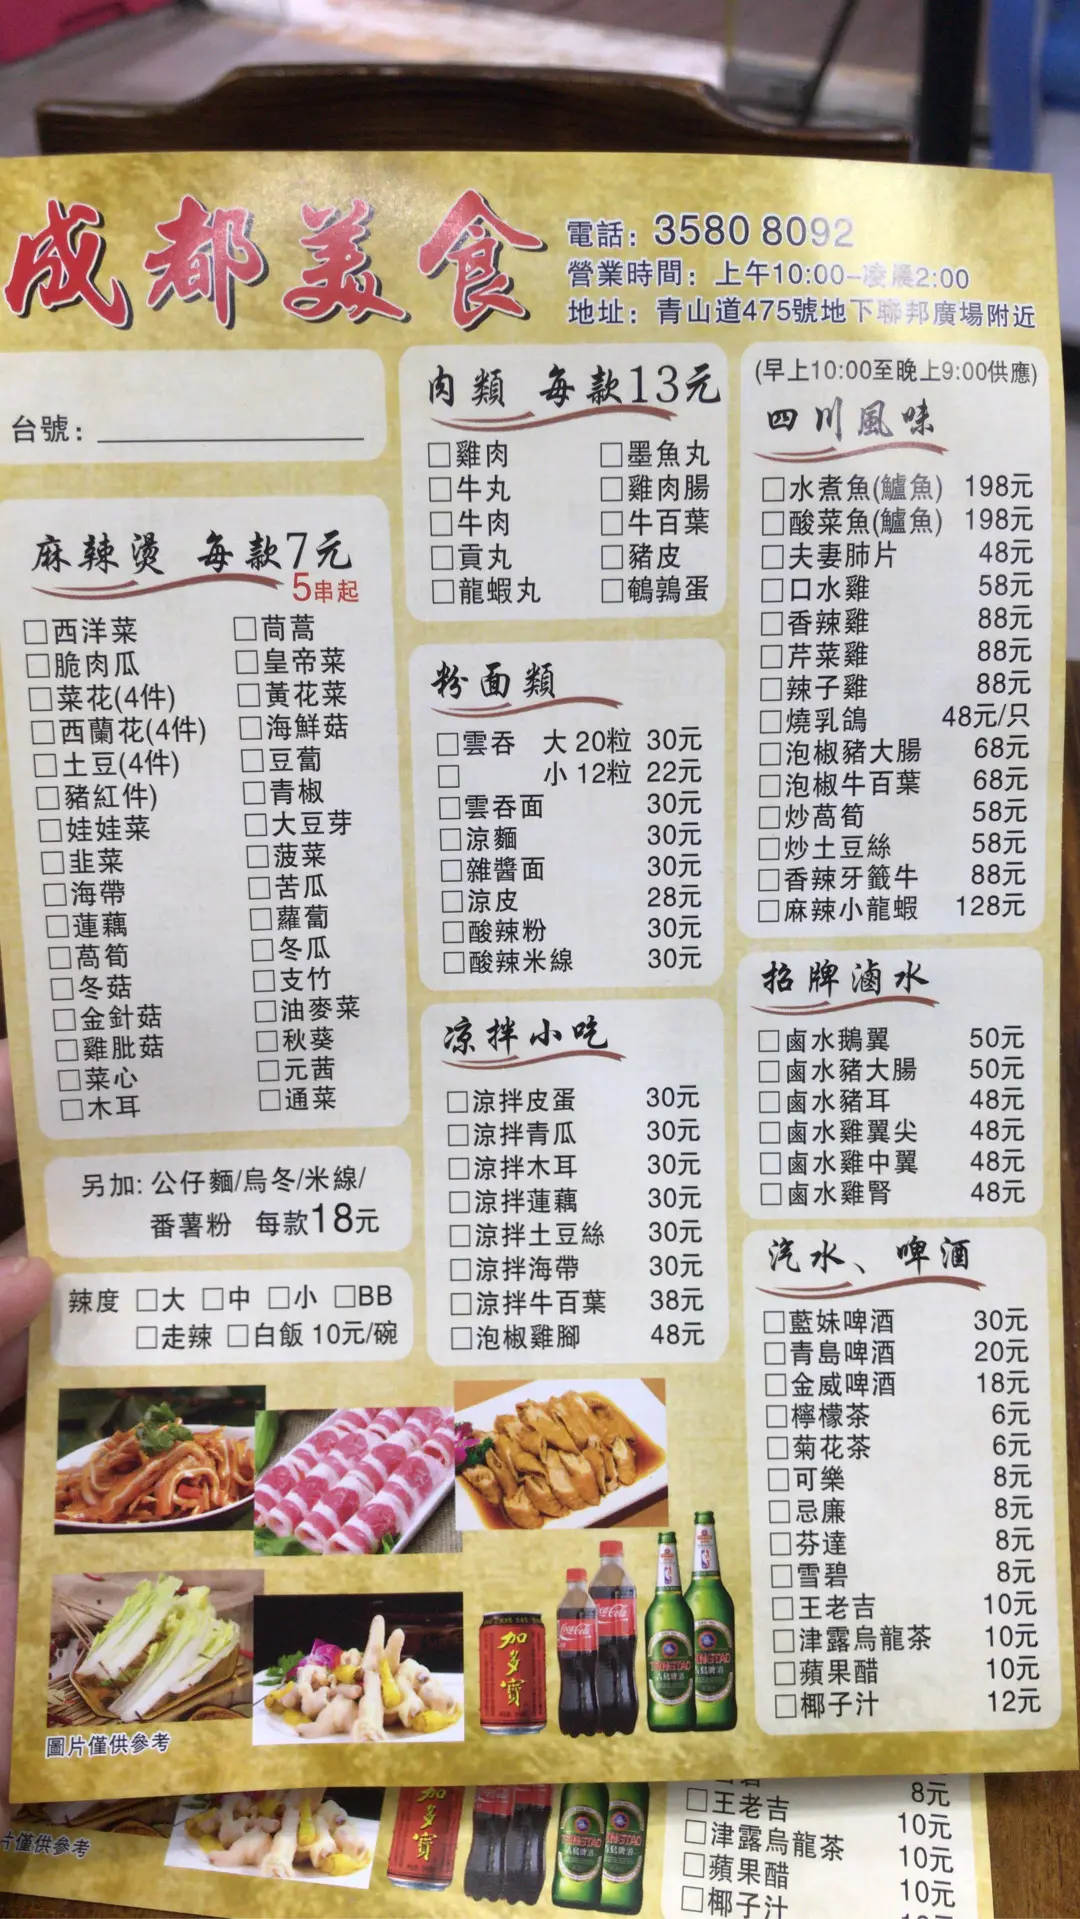 成都美食
電話：3580 8092
營業時間：上午10:00-凌晨2:00
地址：青山道475號地下聯邦廣場附近
台號：
麻辣燙 每款7元
5串起
□西洋菜
□脆肉瓜
□菜花(4件)
□西蘭花(4件)
□土豆(4件)
□豬紅件)
□娃娃菜
□韭菜
□海帶
□蓮藕
□萵筍
□冬菇
□金針菇
□雞肶菇
□菜心
□木耳
□茼蒿
□皇帝菜
□黃花菜
□海鮮菇
□豆蔔
□青椒
□大豆芽
□菠菜
□苦瓜
□蘿蔔
□冬瓜
□支竹
□油麥菜
□秋葵
□元茜
□通菜
另加: 公仔麵/烏冬/米線/
番薯粉 每款18元
辣度 □大 □中 □小 □BB
□走辣 □白飯 10元/碗
肉類 每款13元
□雞肉
□牛丸
□牛肉
□貢丸
□龍蝦丸
□墨魚丸
□雞肉腸
□牛百葉
□豬皮
□鵪鶉蛋
粉面類
□雲吞 大 20粒 30元
□ 小 12粒 22元
□雲吞面 30元
□涼麵 30元
□雜醬面 30元
□涼皮 28元
□酸辣粉 30元
□酸辣米線 30元
凉拌小吃
□涼拌皮蛋 30元
□涼拌青瓜 30元
□涼拌木耳 30元
□涼拌蓮藕 30元
□涼拌土豆絲 30元
□涼拌海帶 30元
□涼拌牛百葉 38元
□泡椒雞腳 48元
(早上10:00至晚上9:00供應)
四川風味
□水煮魚(鱸魚) 198元
□酸菜魚(鱸魚) 198元
□夫妻肺片 48元
□口水雞 58元
□香辣雞 88元
□芹菜雞 88元
□辣子雞 88元
□燒乳鴿 48元/只
□泡椒豬大腸 68元
□泡椒牛百葉 68元
□炒萵筍 58元
□炒土豆絲 58元
□香辣牙籤牛 88元
□麻辣小龍蝦 128元
招牌滷水
□鹵水鵝翼 50元
□鹵水豬大腸 50元
□鹵水豬耳 48元
□鹵水雞翼尖 48元
□鹵水雞中翼 48元
□鹵水雞腎 48元
汽水、啤酒
□藍妹啤酒 30元
□青島啤酒 20元
□金威啤酒 18元
□檸檬茶 6元
□菊花茶 6元
□可樂 8元
□忌廉 8元
□芬達 8元
□雪碧 8元
□王老吉 10元
□津露烏龍茶 10元
□蘋果醋 10元
□椰子汁 12元
加多寶
Coca-Cola
Coca-Cola
TSINGTAO
TSINGTAO
圖片僅供參考
8元
□王老吉 10元
□津露烏龍茶 10元
□蘋果醋 10元
□椰子汁
片僅供參考
加多寶
TSINGTAO